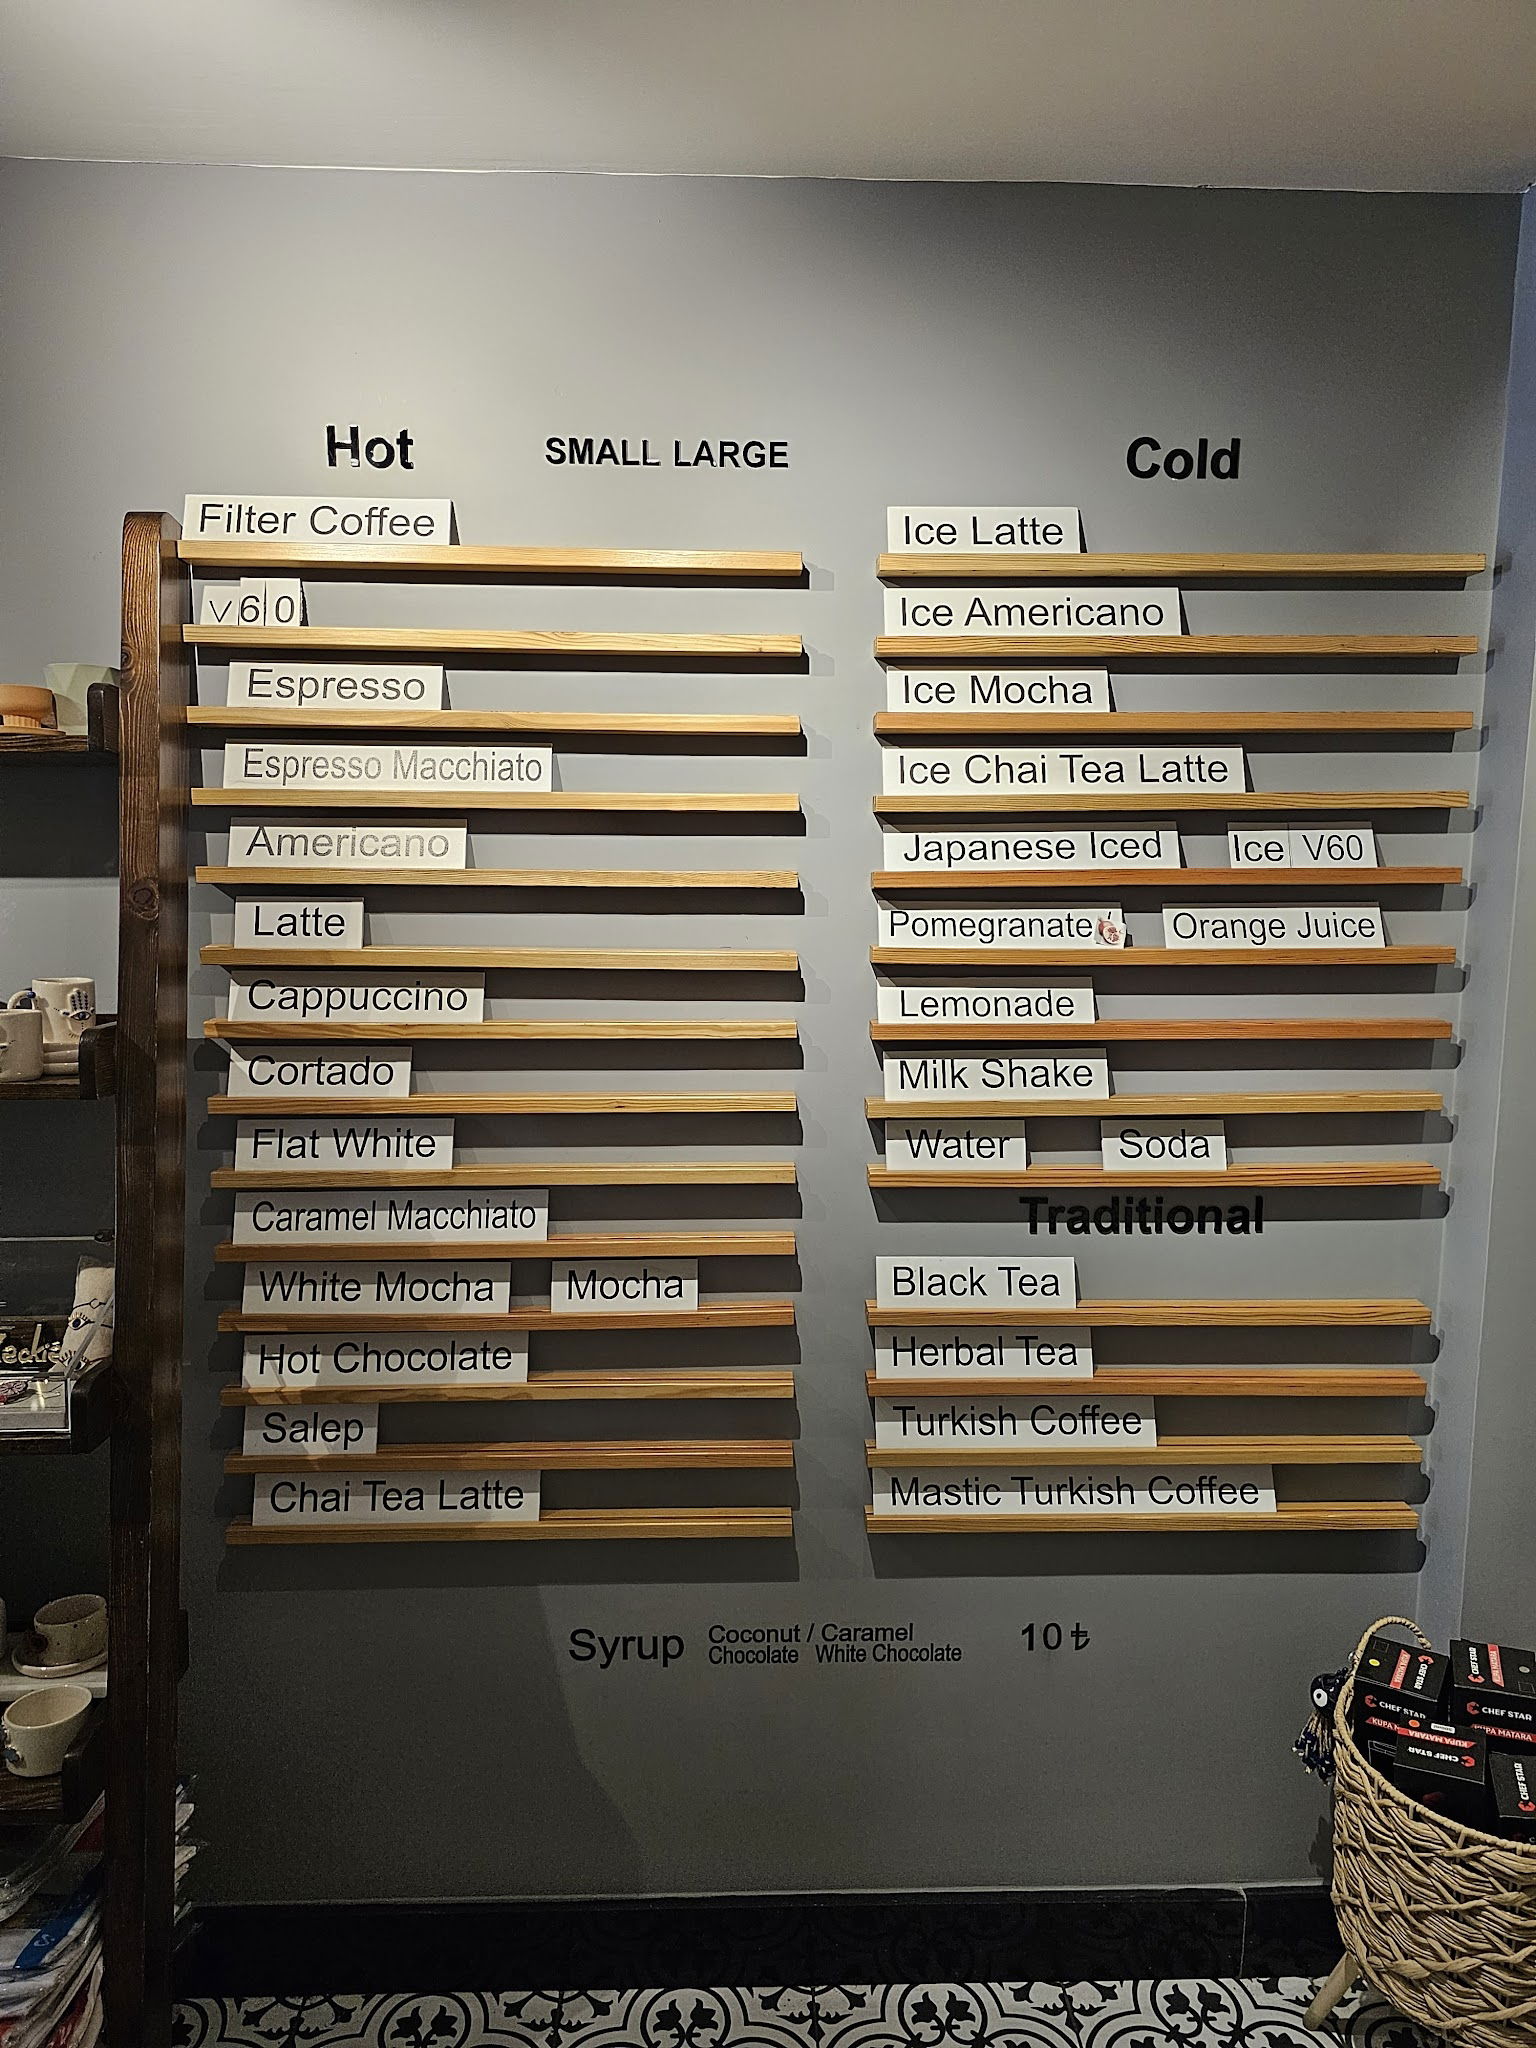 Hot SMALL LARGE
Filter Coffee
V60
Espresso
Espresso Macchiato
Americano
Latte
Cappuccino
Cortado
Flat White
Caramel Macchiato
White Mocha Mocha
Hot Chocolate
Salep
Chai Tea Latte
Cold
Ice Latte
Ice Americano
Ice Mocha
Ice Chai Tea Latte
Japanese Iced Ice V60
Pomegranate / Orange Juice
Lemonade
Milk Shake
Water Soda
Traditional
Black Tea
Herbal Tea
Turkish Coffee
Mastic Turkish Coffee
Syrup Coconut / Caramel 10 ₺
Chocolate White Chocolate
CHEF STAR
KUPA MATARA
CHEF STAR
CHEF STAR
KUPA MATARA
CHEF STAR
KUPA MATARA
CHEF STAR
KUPA MATARA
CHEF STAR